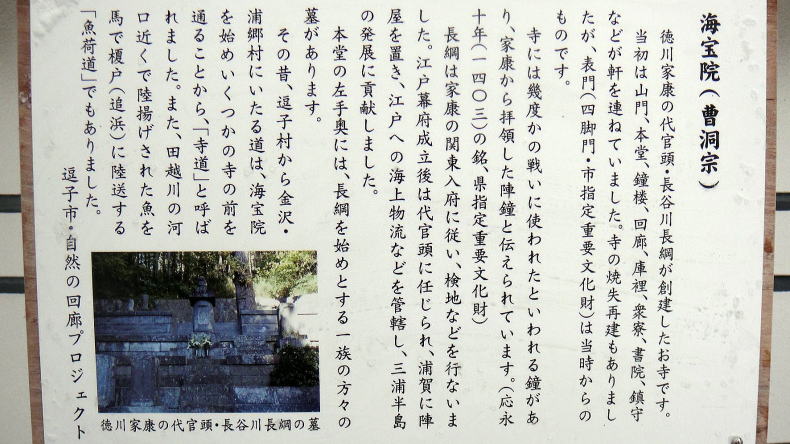 海宝院(曹洞宗)
徳川家康の代官頭・長谷川長綱が創建したお寺です。
当初は山門、本堂、鐘楼、回廊、庫裡、衆寮、書院、鎮守
などが軒を連ねていました。寺の焼失再建もありまし
たが、表門(四脚門・市指定重要文化財)は当時からの
ものです。
寺には幾度かの戦いに使われたといわれる鐘があ
り、家康から拝領した陣鐘と伝えられています。(応永
十年(一四〇三)の銘、県指定重要文化財)
長綱は家康の関東入府に従い、検地などを行ないま
した。江戸幕府成立後は代官頭に任じられ、浦賀に陣
屋を置き、江戸への海上物流などを管轄し、三浦半島
の発展に貢献しました。
本堂の左手奥には、長綱を始めとする一族の方々の
墓があります。
その昔、逗子村から金沢・
浦郷村にいたる道は、海宝院
を始めいくつかの寺の前を
通ることから、「寺道」と呼ば
れました。また、田越川の河
口近くで陸揚げされた魚を
馬で榎戸(追浜)に陸送する
「魚荷道」でもありました。
逗子市・自然の回廊プロジェクト
徳川家康の代官頭・長谷川長綱の墓